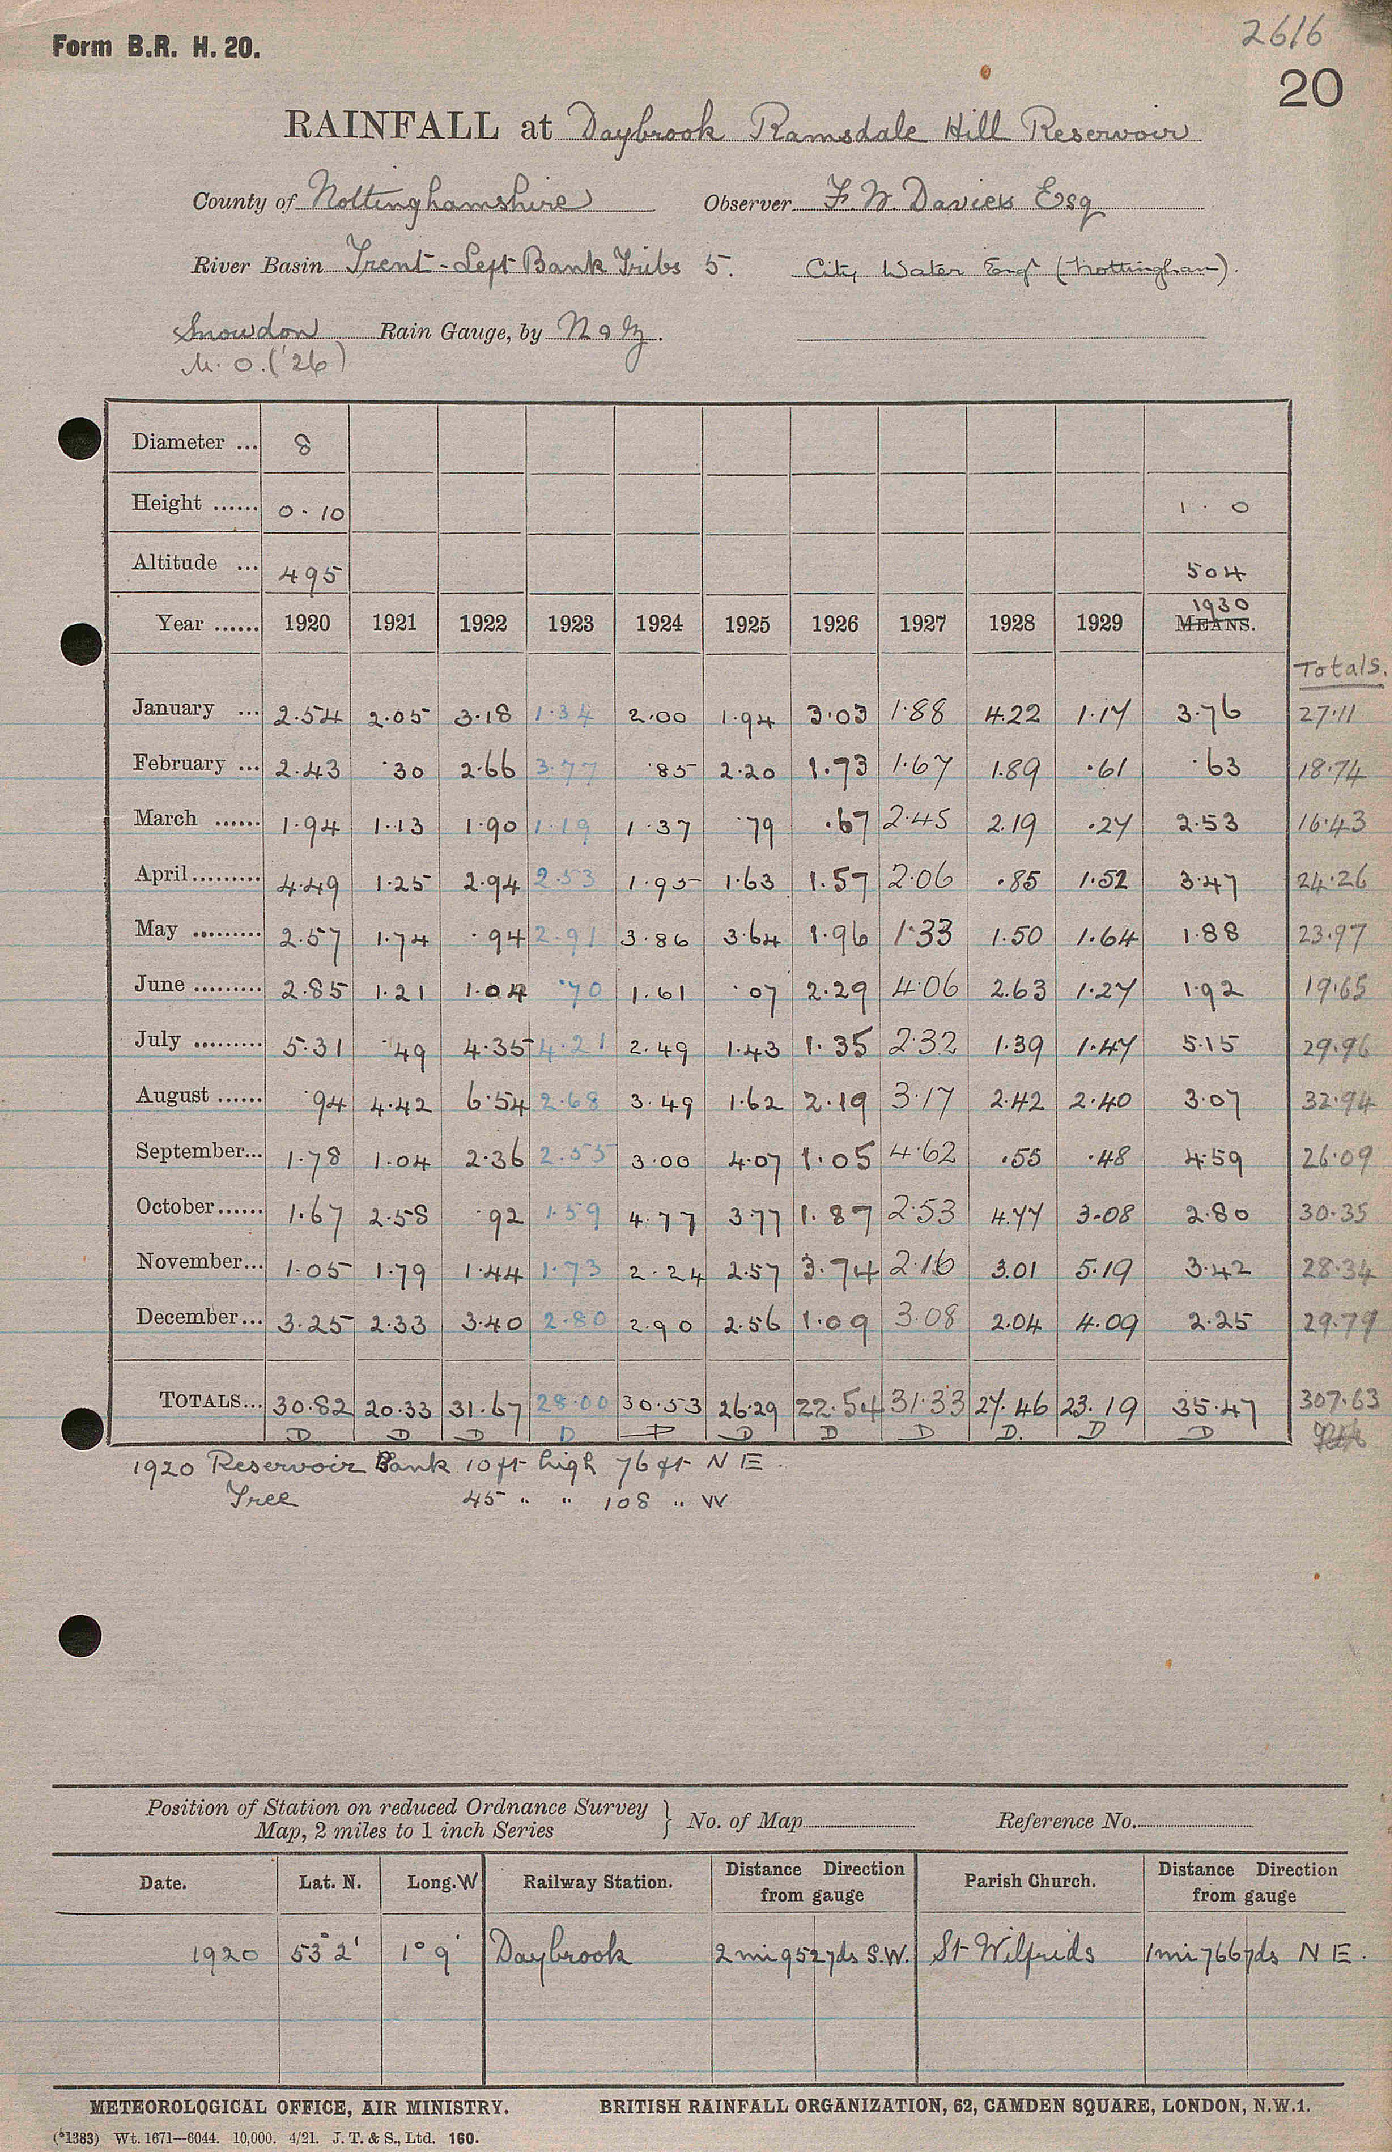 2616
Form B.R. H. 20.
20
RAINFALL at Daybrook Ramsdale Hill Reservoir
County of Nottinghamshire Observer F. W. Davies Esq
River Basin Trent - Left Bank Tribs 5. City Water Engr (Nottingham).
Snowdon Rain Gauge, by N & Z
M.O. ('26)
Diameter ... 8
Height ...... 0.10 1.0
Altitude ... 495 504
Year ...... 1920 1921 1922 1923 1924 1925 1926 1927 1928 1929 1930 MEANS.
Totals.
January ... 2.54 2.05 3.18 1.34 2.00 1.94 3.03 1.88 4.22 1.17 3.76 27.11
February ... 2.43 .30 2.66 3.77 .85 2.20 1.73 1.67 1.89 .61 .63 18.74
March ...... 1.94 1.13 1.90 1.19 1.37 .79 .67 2.45 2.19 .27 2.53 16.43
April ......... 4.49 1.25 2.94 2.53 1.95 1.63 1.57 2.06 .85 1.52 3.47 24.26
May ......... 2.57 1.74 .94 2.91 3.86 3.64 1.96 1.33 1.50 1.64 1.88 23.97
June ......... 2.85 1.21 1.04 .70 1.61 .07 2.29 4.06 2.63 1.27 1.92 19.65
July ......... 5.31 .49 4.35 4.21 2.49 1.43 1.35 2.32 1.39 1.47 5.15 29.96
August ...... .94 4.42 6.54 2.68 3.49 1.62 2.19 3.17 2.42 2.40 3.07 32.94
September... 1.78 1.04 2.36 2.55 3.00 4.07 1.05 4.62 .55 .48 4.59 26.09
October...... 1.67 2.58 .92 1.59 4.77 3.77 1.87 2.53 4.77 3.08 2.80 30.35
November... 1.05 1.79 1.44 1.73 2.24 2.57 3.74 2.16 3.01 5.19 3.42 28.34
December... 3.25 2.33 3.40 2.80 2.90 2.56 1.09 3.08 2.04 4.09 2.25 29.79
TOTALS... 30.82 20.33 31.67 28.00 30.53 26.29 22.54 31.33 27.46 23.19 35.47 307.63
D D D D D D D D D. D D
1920 Reservoir Bank 10 ft high 76 ft N E.
Tree 45 " " 108 " W
Position of Station on reduced Ordnance Survey Map, 2 miles to 1 inch Series } No. of Map Reference No.
Date. Lat. N. Long. W Railway Station. Distance Direction from gauge Parish Church. Distance Direction from gauge
1920 53° 2' 1° 9' Daybrook 2 mi 952 yds S.W. St Wilfrids 1 mi 766 yds N E.
METEOROLOGICAL OFFICE, AIR MINISTRY. BRITISH RAINFALL ORGANIZATION, 62, CAMDEN SQUARE, LONDON, N.W.1.
(*1383) Wt. 1671—6044. 10,000. 4/21. J. T. & S., Ltd. 160.